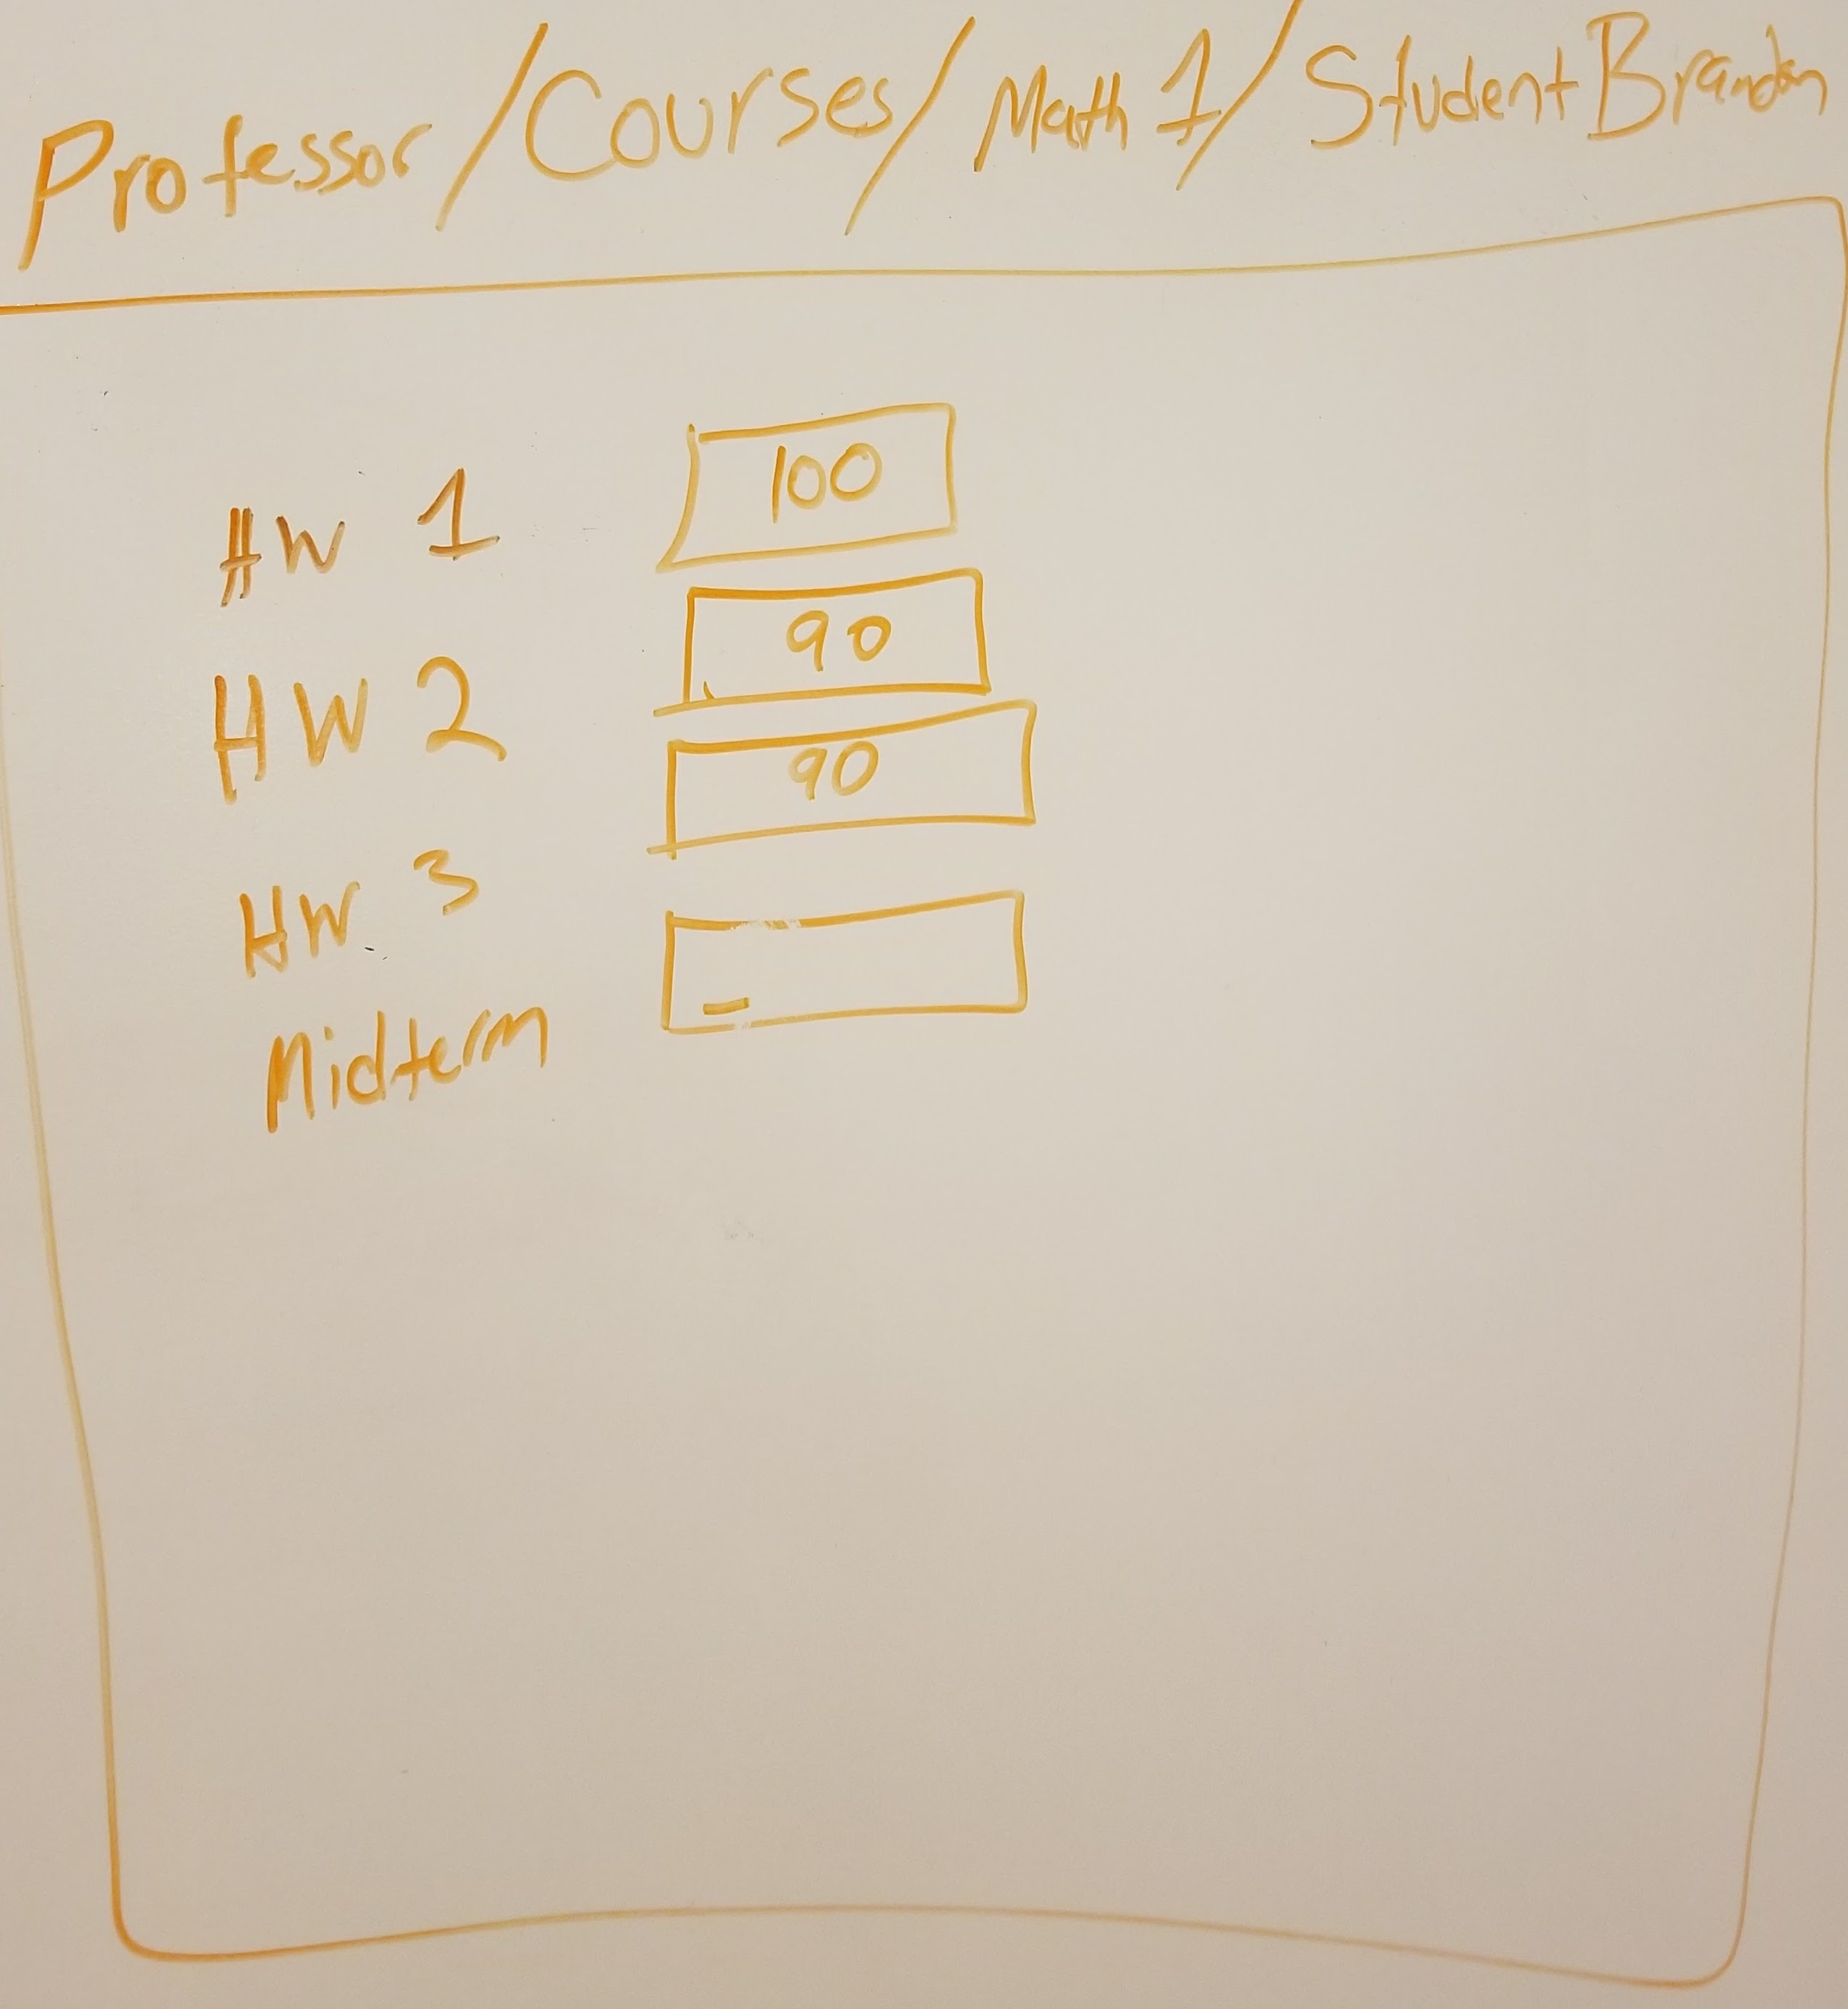 Professor/Courses/Math 1/Student Brandon
HW 1 100
HW 2 90
HW 3 90
Midterm _